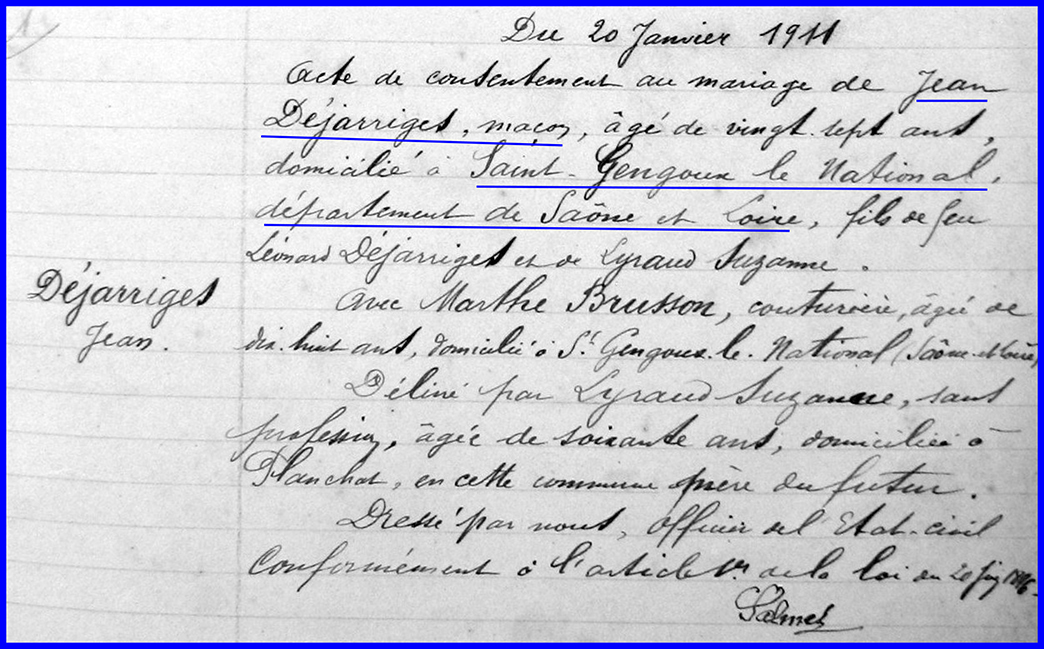 Du 20 Janvier 1911
Acte de consentement au mariage de Jean
Déjarriges, maçon, âgé de vingt-sept ans,
domicilié à Saint-Gengoux le National,
département de Saône et Loire, fils de feu
Léonard Déjarriges et de Lyraud Suzanne.
Avec Marthe Brusson, couturière, âgée de
Déjarriges
Jean.
dix-huit ans, domicilié à St Gengoux-le-National (Saône-et-Loire)
Déliné par Lyraud Suzanne, sans
profession, âgée de soixante ans, domiciliée à
Planchat, en cette commune mère du futur.
Dressé par nous, officier de l'Etat-civil
Conformément à l'article 1er de la loi du 20 juin 1896.